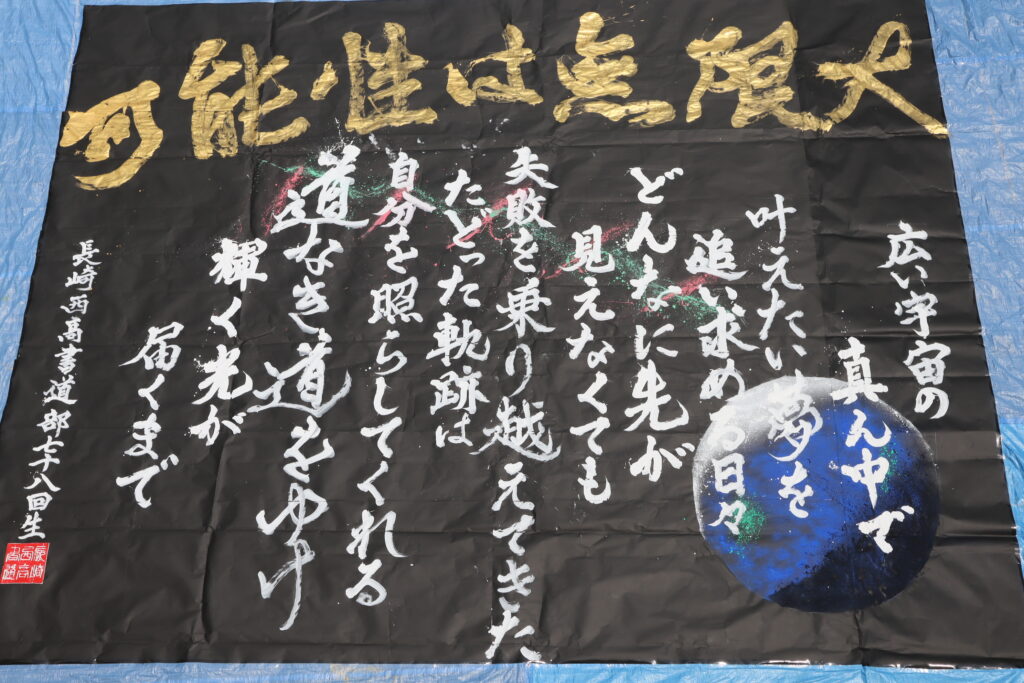 可能性は無限大
広い宇宙の
真ん中で
叶えたい夢を
追い求める日々
どんなに先が
見えなくても
失敗を乗り越えてきた
たどった軌跡は
自分を照らしてくれる
道なき道をゆけ
輝く光が
届くまで
長崎西高書道部七十八回生